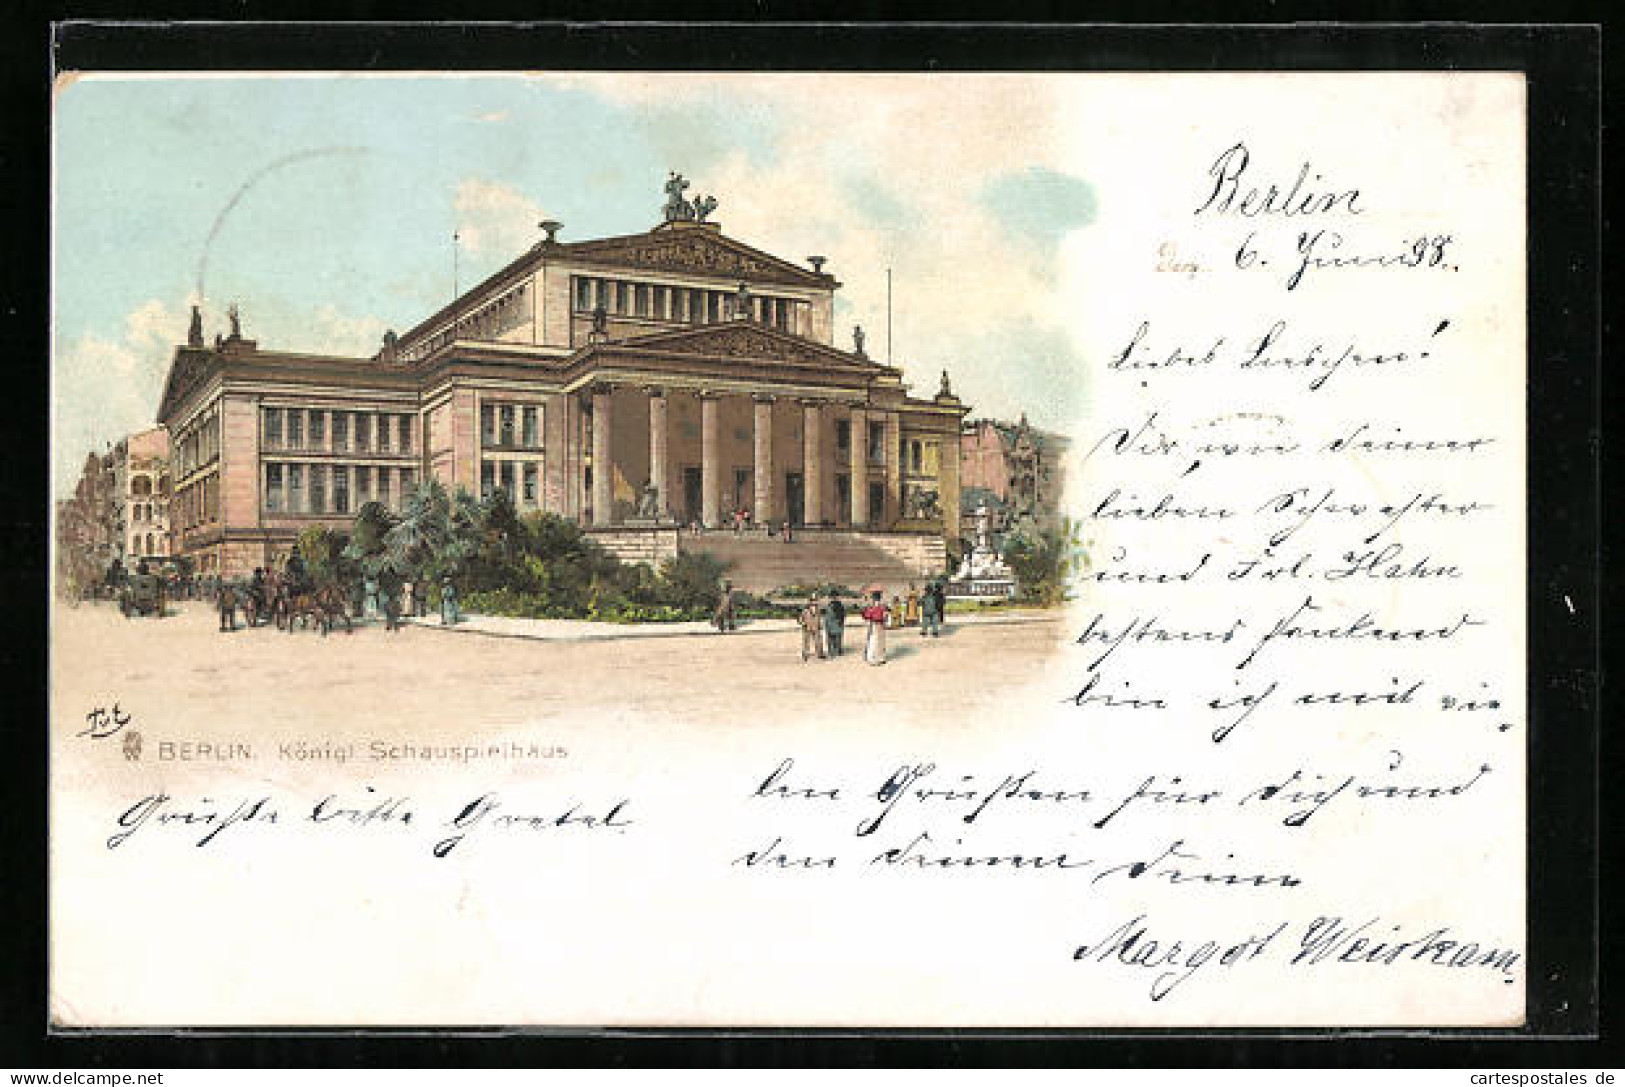 Berlin
den 6. Juni 98.
Liebes Lieschen!
Dir, wie Deiner
lieben Schwester
und Frl. Hahn
bestens dankend
bin ich mit vie-
len Grüßen für Dich und
den Deinen Deine
Margot Weiskam
BERLIN. Königl Schauspielhaus
Grüße bitte Gretel.
delcampe.net
cartespostales de